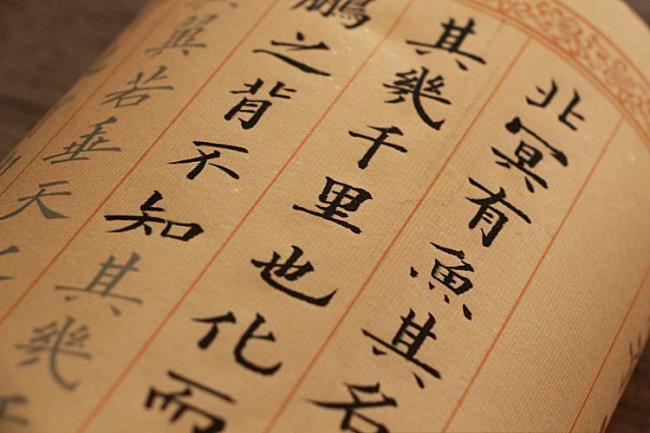 北冥有魚其名
其幾千里也化而
鵬之背不知其幾千
翼若垂天